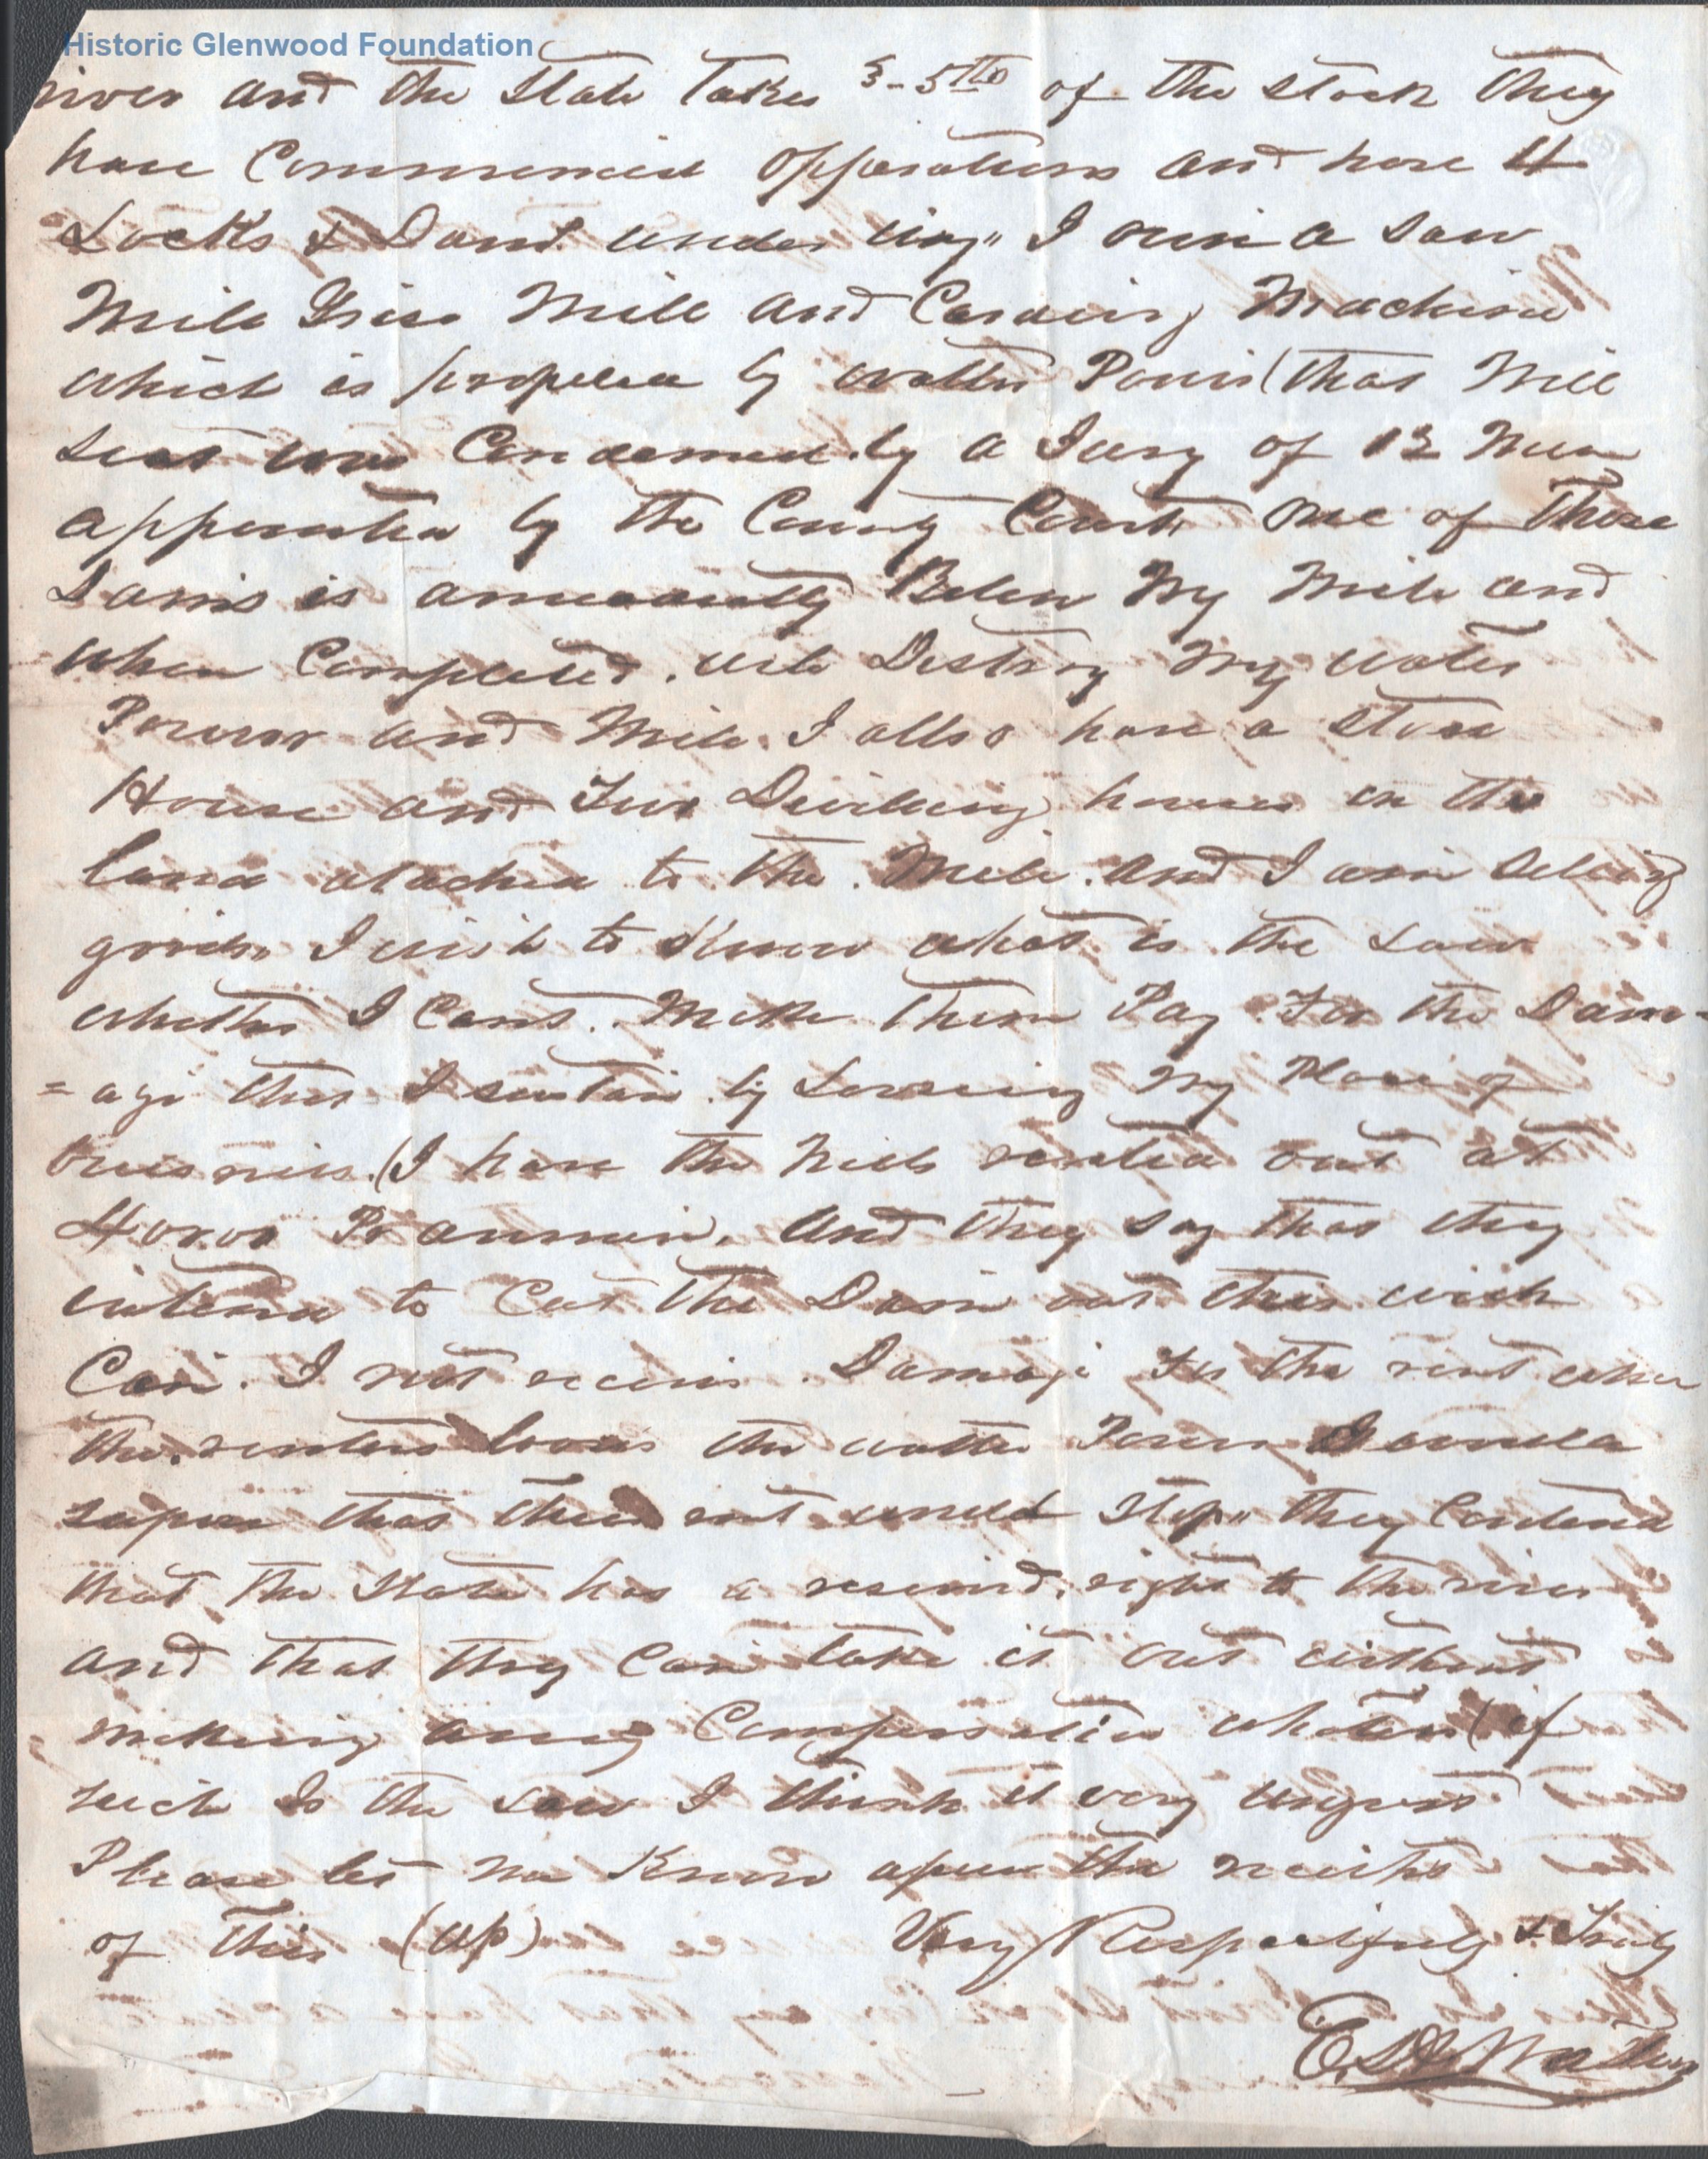 Historic Glenwood Foundation
river and the State Takes 3-5ths of the stock they
have Commenced opperations and have 4
Locks & Dams under way" I own a saw
Mill Grise Mill and Carding Machine
which is propelled by watter Power (that Mill
seat was Condemed by a Jury of 12 Men
appointed by the County Court one of Those
Dams is Below My Mill and
when Completed. will Destroy My water
Power and Mill. I allso have a store
House and Two Dwelling houses on the
land atached to the. Mill. and I am Selling
goods, I wish to Know what is the Law
whether I Cant. Make them Pay For the Dam-
=age that I sustain by Loosing My Place of
buisness. (I have the Mills rented out at
per annum, and they say that they
intend to Cut the Dam out this
Can. I not receive. Damage for the rent when
the. renters looses the watter Power I would
supose that the rent would Stop" they Contend
that the State has a reserved. right to the river
and that they Can take it out without
making any Compensation whatever (if
such Is the Law I think it very unjust
Please let me Know apon the receipt
of this (up) Very Respectfully & Truly
E.